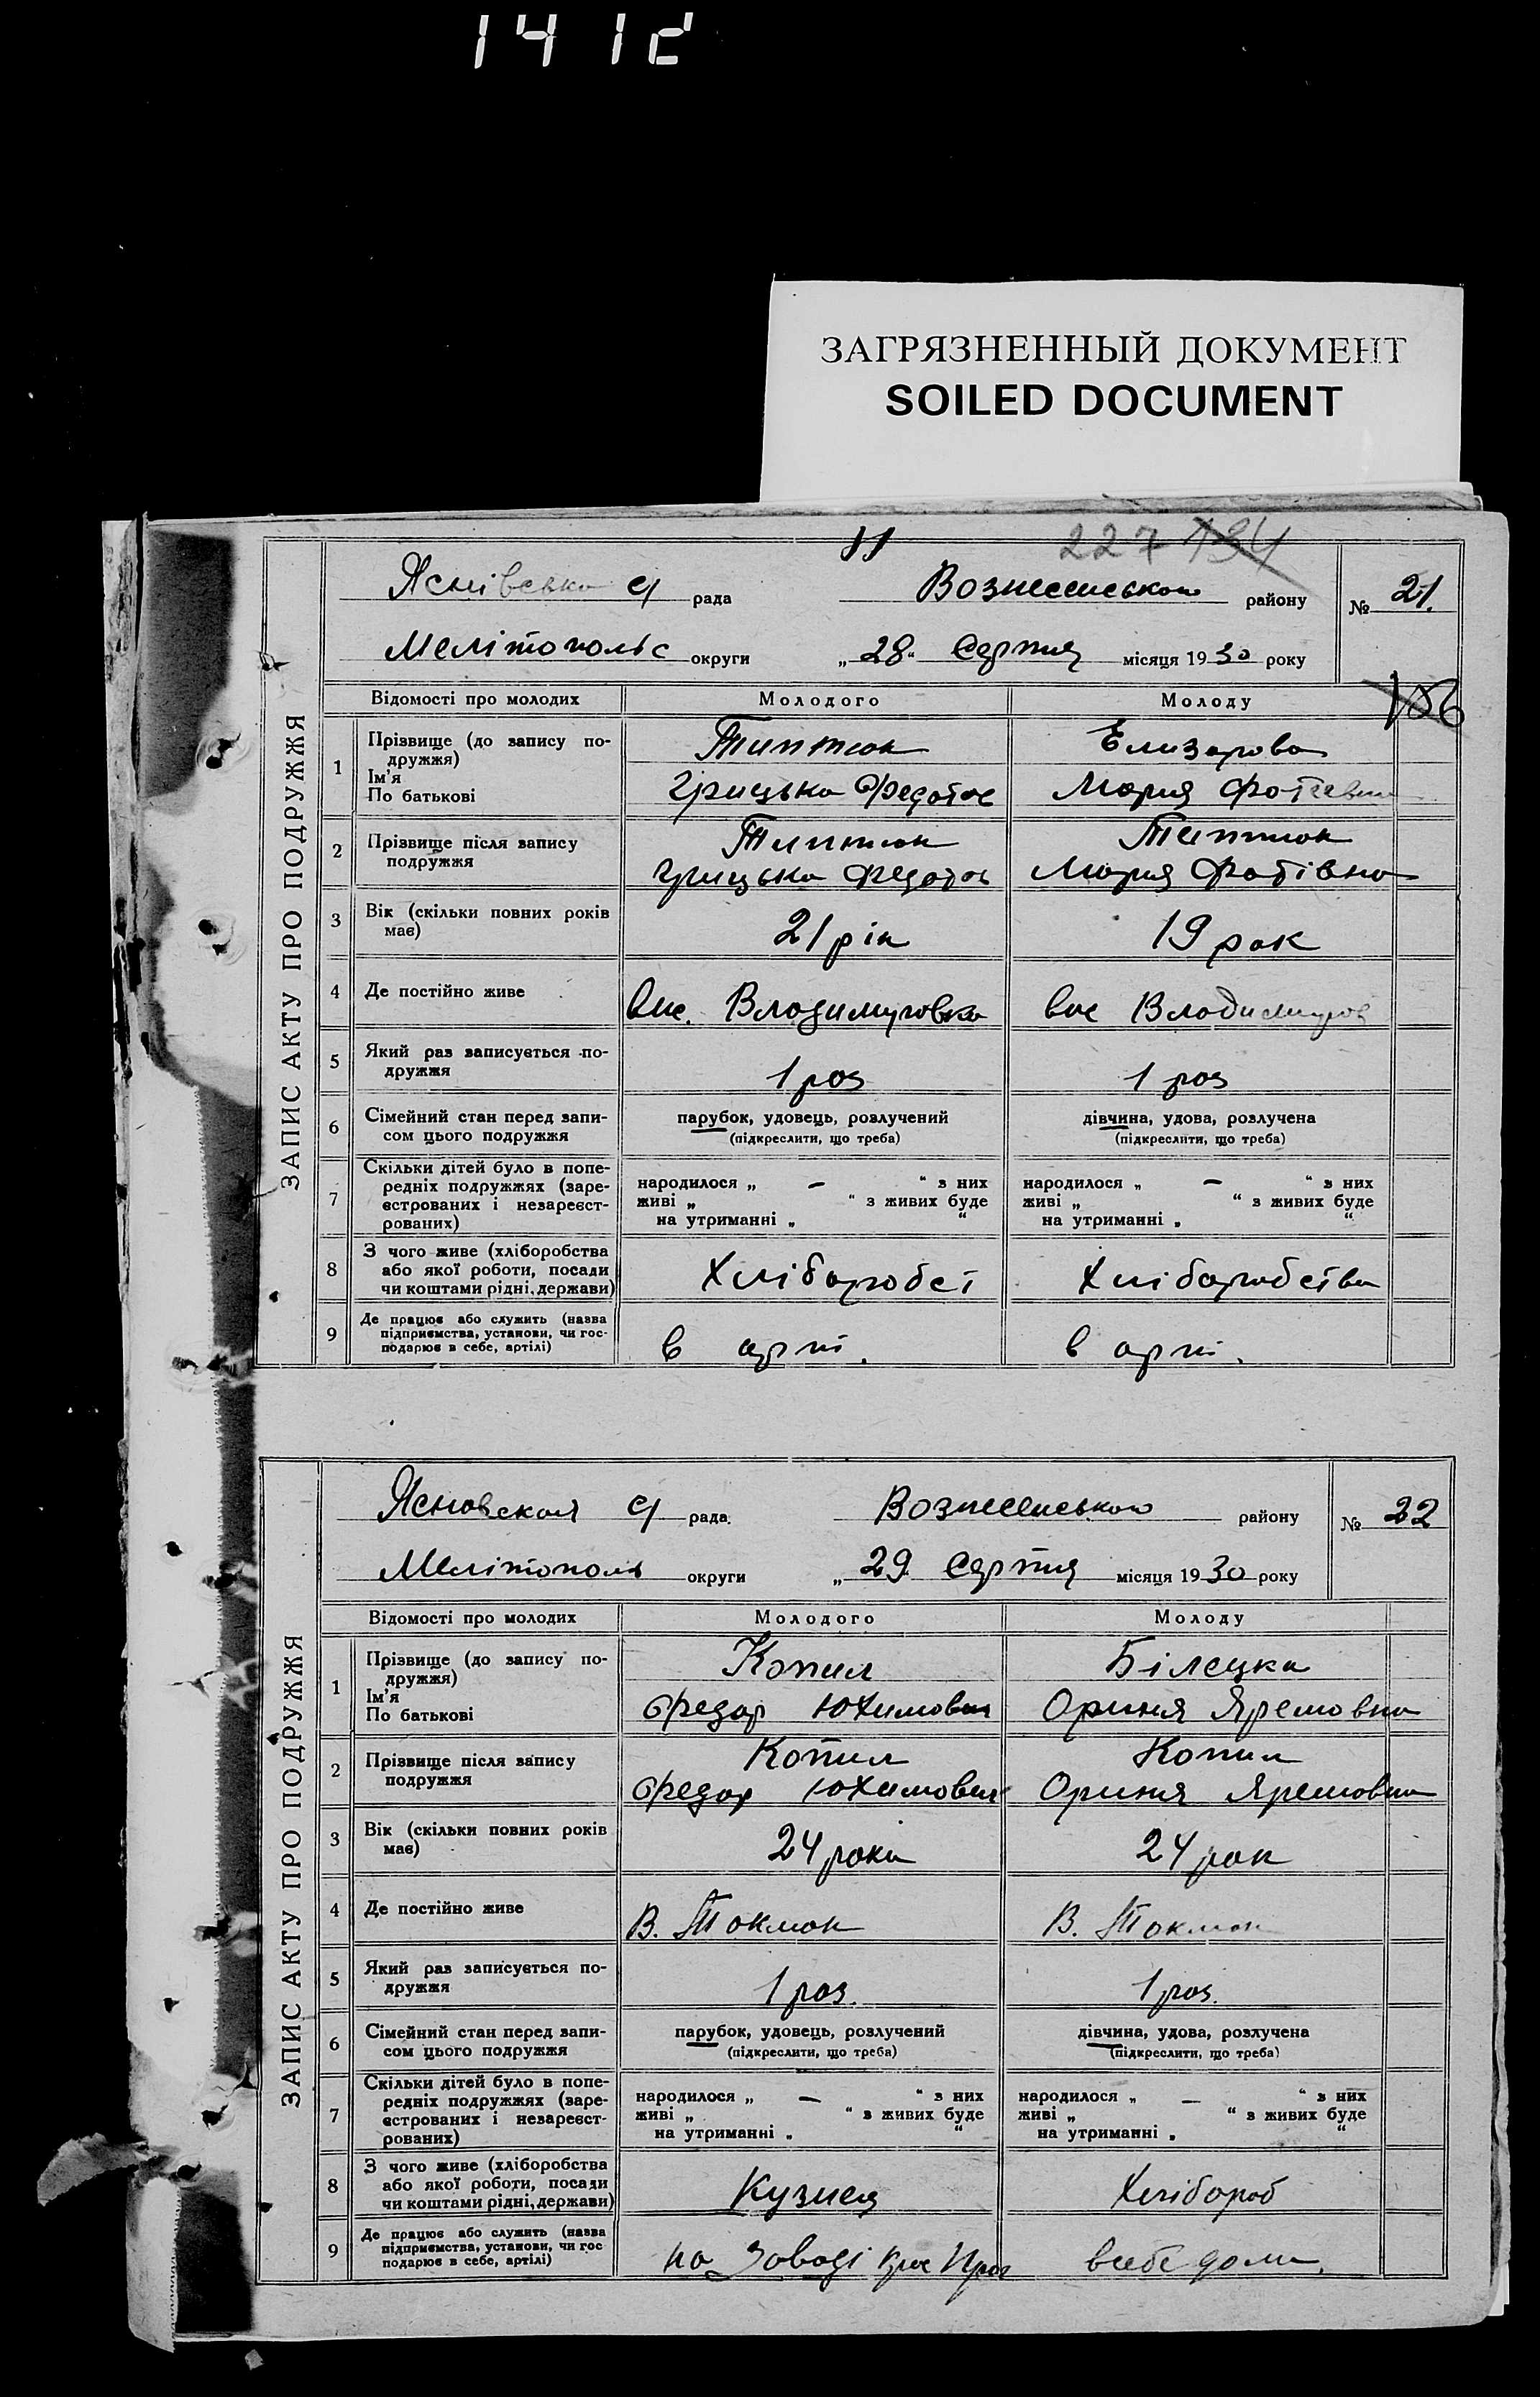 1412
ЗАГРЯЗНЕННЫЙ ДОКУМЕНТ
SOILED DOCUMENT
11 227 134
ЗАПИС АКТУ ПРО ПОДРУЖЖЯ
Яснівсько с/ рада Вознесенського району № 21.
Мелітопольс округи „28“ Серпня місяця 1930 року
106
Відомості про молодих Молодого Молоду
1 Прізвище (до запису подружжя) Типтюк Елизарова
Ім'я
По батькові Грицько Федотов Мария Фотеевна
2 Прізвище після запису Типтюк Типтюк
подружжя Грицько Федотов Мария Фотівна
3 Вік (скільки повних років має) 21 рік 19 рок
4 Де постійно живе вис. Владимировка вис Владимиров
5 Який раз записується подружжя 1 раз 1 раз
6 Сімейний стан перед запи- парубок, удовець, розлучений дівчина, удова, розлучена
сом цього подружжя (підкреслити, що треба) (підкреслити, що треба)
7 Скільки дітей було в попе-
редніх подружжях (заре- народилося „ — “ з них народилося „ — “ з них
єстрованих і незареєст- живі „ “ з живих буде живі „ “ з живих буде
рованих) на утриманні „ “ на утриманні „ “
8 З чого живе (хліборобства
або якої роботи, посади Хліборобст Хліборобства
чи коштами рідні, держави)
9 Де працює або служить (назва
підприємства, установи, чи гос-
подарює в себе, артілі) в арт. в арт.
ЗАПИС АКТУ ПРО ПОДРУЖЖЯ
Ясновская с/ рада Вознесенського району № 22
Мелітополь округи „29 Серпня місяця 1930 року
Відомості про молодих Молодого Молоду
1 Прізвище (до запису подружжя) Копил Білецка
Ім'я
По батькові Федор Юхимович Ориня Яремовна
2 Прізвище після запису Копил Копил
подружжя Федор Юхимович Ориня Яремовна
3 Вік (скільки повних років має) 24 роки 24 рок
4 Де постійно живе В. Токмак В. Токмак
5 Який раз записується подружжя 1 раз. 1 раз.
6 Сімейний стан перед запи- парубок, удовець, розлучений дівчина, удова, розлучена
сом цього подружжя (підкреслити, що треба) (підкреслити, що треба)
7 Скільки дітей було в попе-
редніх подружжях (заре- народилося „ — “ з них народилося „ — “ з них
єстрованих і незареєст- живі „ “ з живих буде живі „ “ з живих буде
рованих) на утриманні „ “ на утриманні „ “
8 З чого живе (хліборобства
або якої роботи, посади Кузнец Хлібороб
чи коштами рідні, держави)
9 Де працює або служить (назва
підприємства, установи, чи гос
подарює в себе, артілі) на Заводі в себе дома.